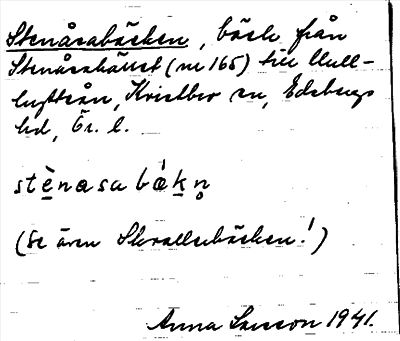 Stenåsabäcken, bäck från
Stenåsakället (nr 165) till Mull-
hyttån, Kvistbro sn, Edsbergs
hd, Ör. l.
stè̱nasa bǽḵn̥
(Se även Skrallerbäcken!)
Anna Larsson 1941.